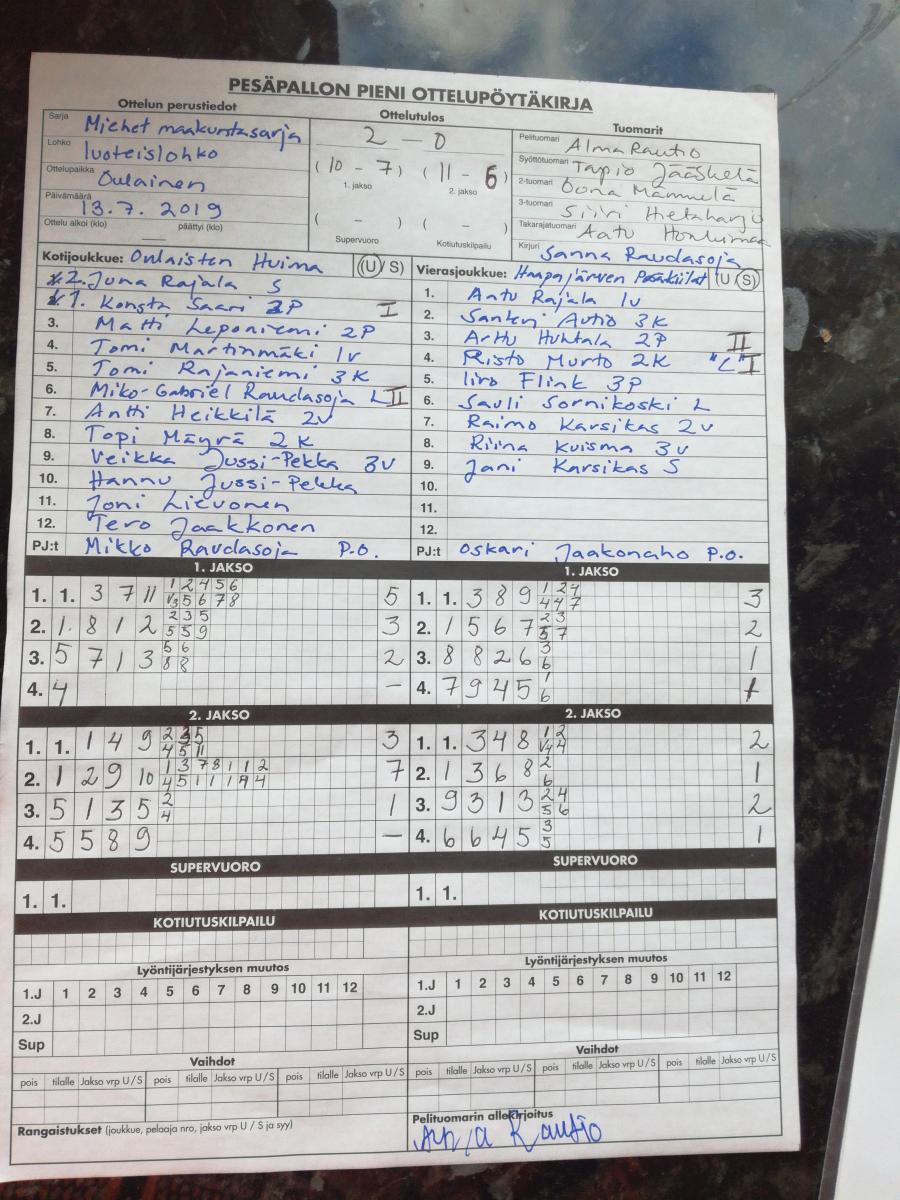 PESÄPALLON PIENI OTTELUPÖYTÄKIRJA
Ottelun perustiedot
Sarja Miehet maakuntasarja
Lohko luoteislohko
Ottelupaikka Oulainen
Päivämäärä 13.7.2019
Ottelu alkoi (klo) — päättyi (klo)
Ottelutulos
2 – 0
(10 – 7) (11 – 6)
1. jakso 2. jakso
( – ) ( – )
Supervuoro Kotiutuskilpailu
Tuomarit
Pelituomari Alma Rautio
Syöttötuomari Tapio Jääskelä
2-tuomari Oona Mämmelä
3-tuomari Siiri Hietaharju
Takarajatuomari Aatu
Kirjuri Sanna Raudasoja
Kotijoukkue: Oulaisten Huima (U/S)
2. Juna Rajala S
1. Konsta Saari 3P I
3. Matti Leponiemi 2P
4. Tomi Martinmäki 1v
5. Tomi Rajaniemi 3K
6. Miko-Gabriel Raudasoja L II
7. Antti Heikkilä 2v
8. Topi Mäyrä 2K
9. Veikka Jussi-Pekka 3v
10. Hannu Jussi-Pekka
11. Joni Lievonen
12. Tero Jaakkonen
PJ:t Mikko Raudasoja P.O.
Vierasjoukkue: Haapajärven Pesäkiilat (U/S)
1. Antu Rajala 1v
2. Santeri Autio 3K
3. Arttu Huhtala 2P II
4. Risto Murto 2K "C" I
5. Iiro Flink 3P
6. Sauli Sornikoski L
7. Raimo Karsikas 2v
8. Riina Kuisma 3v
9. Jani Karsikas S
10.
11.
12.
PJ:t Oskari Jaakonaho P.O.
1. JAKSO
1. 1. 3 7 11 1 2 4 5 6 5
1/3 5 6 7 8
2. 1. 8 1 2 2 3 5 3
5 5 9
3. 5 7 1 3 5 6 2
8 8
4. 4 –
1. JAKSO
1. 1. 3 8 9 1 2 4 3
4 4 7
2. 1 5 6 7 2 3 2
5 7
3. 8 8 2 6 3 1
6
4. 7 9 4 5 1 1
6
2. JAKSO
1. 1. 1 4 9 2 3 5 3
4 5 11
2. 1 2 9 10 1 3 7 8 1 1 2 7
4 5 1 1 1 4 4
3. 5 1 3 5 2 1
4
4. 5 5 8 9 –
2. JAKSO
1. 1. 3 4 8 1 2 2
1/4 4
2. 1 3 6 8 2 1
6
3. 9 3 1 3 2 4 2
5 6
4. 6 6 4 5 3 1
5
SUPERVUORO
1. 1.
SUPERVUORO
1. 1.
KOTIUTUSKILPAILU
KOTIUTUSKILPAILU
Lyöntijärjestyksen muutos
1.J 1 2 3 4 5 6 7 8 9 10 11 12
2.J
Sup
Lyöntijärjestyksen muutos
1.J 1 2 3 4 5 6 7 8 9 10 11 12
2.J
Sup
Vaihdot
pois tilalle Jakso vrp U/S pois tilalle Jakso vrp U/S pois tilalle Jakso vrp U/S
Vaihdot
pois tilalle Jakso vrp U/S pois tilalle Jakso vrp U/S pois tilalle Jakso vrp U/S
Rangaistukset (joukkue, pelaaja nro, jakso vrp U / S ja syy)
Pelituomarin allekirjoitus
Rautio